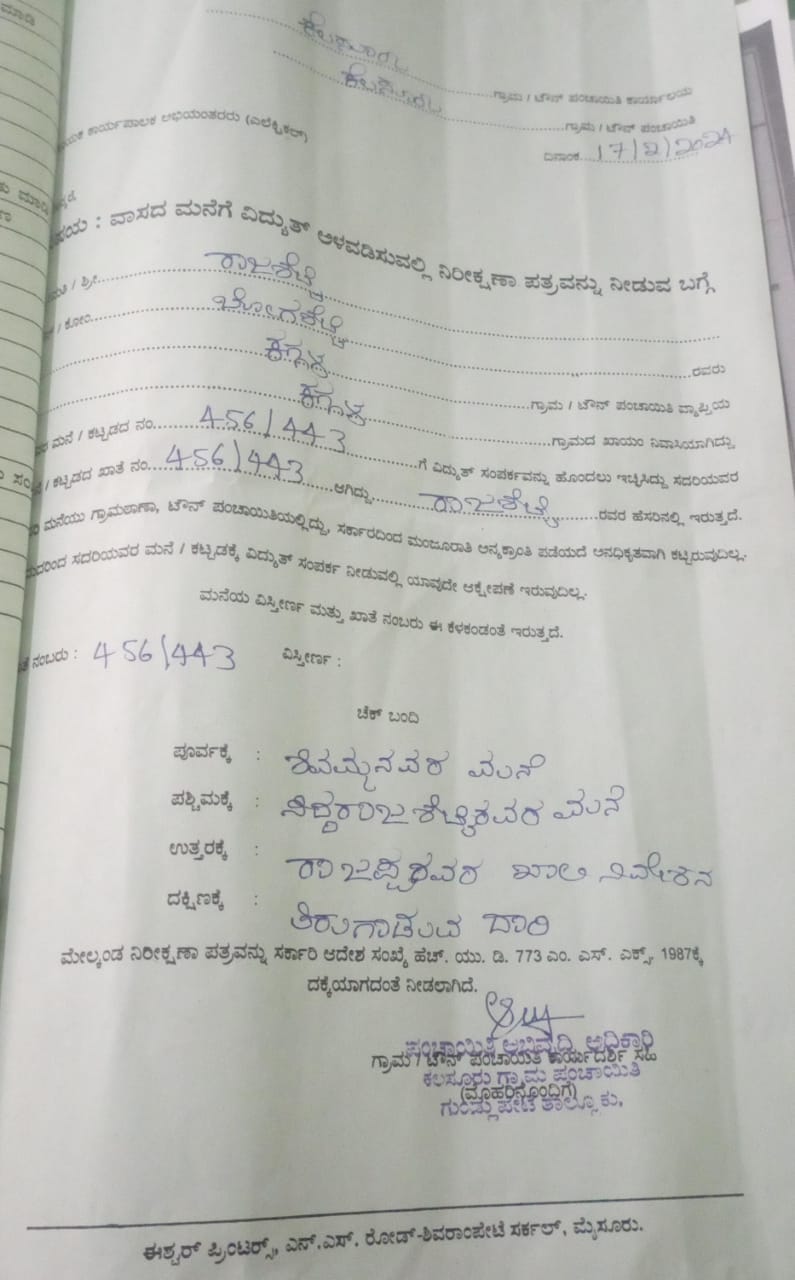 ಮಾಡಿ
ಕೆಲಸೂರು
........ಗ್ರಾಮ / ಟೌನ್ ಪಂಚಾಯಿತಿ ಕಾರ್ಯಾಲಯ
ಕೆಲಸೂರು
........ಗ್ರಾಮ / ಟೌನ್ ಪಂಚಾಯಿತಿ
ದಿನಾಂಕ...17/2/2024
ಕಾರ್ಯಪಾಲಕ ಅಭಿಯಂತರರು (ಎಲೆಕ್ಟ್ರಿಕಲ್)
: ವಾಸದ ಮನೆಗೆ ವಿದ್ಯುತ್ ಅಳವಡಿಸುವಲ್ಲಿ ನಿರೀಕ್ಷಣಾ ಪತ್ರವನ್ನು ನೀಡುವ ಬಗ್ಗೆ
/ ಶ್ರೀ........ರಾಜಶೆಟ್ಟಿ........
/ ಕೋಂ........ಬೋಗಶೆಟ್ಟಿ........ರವರು
........ಗ್ರಾಮ / ಟೌನ್ ಪಂಚಾಯಿತಿ ವ್ಯಾಪ್ತಿಯ
........ಗ್ರಾಮದ ಖಾಯಂ ನಿವಾಸಿಯಾಗಿದ್ದು
ಮನೆ / ಕಟ್ಟಡದ ನಂ........456/443........ಗೆ ವಿದ್ಯುತ್ ಸಂಪರ್ಕವನ್ನು ಹೊಂದಲು ಇಚ್ಛಿಸಿದ್ದು ಸದರಿಯವರ
/ ಕಟ್ಟಡದ ಖಾತೆ ನಂ...456/443...ಆಗಿದ್ದು........ರಾಜಶೆಟ್ಟಿ........ರವರ ಹೆಸರಿನಲ್ಲಿ ಇರುತ್ತದೆ.
ಮನೆಯು ಗ್ರಾಮಠಾಣಾ, ಟೌನ್ ಪಂಚಾಯಿತಿಯಲ್ಲಿದ್ದು, ಸರ್ಕಾರದಿಂದ ಮಂಜೂರಾತಿ ಅನ್ಯಕ್ರಾಂತಿ ಪಡೆಯದೆ ಅನಧಿಕೃತವಾಗಿ ಕಟ್ಟಿರುವುದಿಲ್ಲ.
ಸದರಿಯವರ ಮನೆ / ಕಟ್ಟಡಕ್ಕೆ ವಿದ್ಯುತ್ ಸಂಪರ್ಕ ನೀಡುವಲ್ಲಿ ಯಾವುದೇ ಆಕ್ಷೇಪಣೆ ಇರುವುದಿಲ್ಲ.
ಮನೆಯ ವಿಸ್ತೀರ್ಣ ಮತ್ತು ಖಾತೆ ನಂಬರು ಈ ಕೆಳಕಂಡಂತೆ ಇರುತ್ತದೆ.
ನಂಬರು : 456/443 ವಿಸ್ತೀರ್ಣ :
ಚೆಕ್ ಬಂದಿ
ಪೂರ್ವಕ್ಕೆ : ಶಿವಮ್ಮನವರ ಮನೆ
ಪಶ್ಚಿಮಕ್ಕೆ : ಸಿದ್ದರಾಜಶೆಟ್ಟಿರವರ ಮನೆ
ಉತ್ತರಕ್ಕೆ : ರಾಜಪ್ಪರವರ ಖಾಲಿ ನಿವೇಶನ
ದಕ್ಷಿಣಕ್ಕೆ : ತಿರುಗಾಡುವ ದಾರಿ
ಮೇಲ್ಕಂಡ ನಿರೀಕ್ಷಣಾ ಪತ್ರವನ್ನು ಸರ್ಕಾರಿ ಆದೇಶ ಸಂಖ್ಯೆ ಹೆಚ್. ಯು. ಡಿ. 773 ಎಂ. ಎಸ್. ಎಕ್ಸ್, 1987ಕ್ಕೆ
ದಕ್ಕೆಯಾಗದಂತೆ ನೀಡಲಾಗಿದೆ.
ಪಂಚಾಯಿತಿ ಅಭಿವೃದ್ಧಿ ಅಧಿಕಾರಿ
ಗ್ರಾಮ / ಟೌನ್ ಪಂಚಾಯಿತಿ ಕಾರ್ಯದರ್ಶಿ ಸಹಿ
ಕಲಸೂರು ಗ್ರಾಮ ಪಂಚಾಯಿತಿ
(ಮೊಹರಿನೊಂದಿಗೆ)
ಗುಂಡ್ಲುಪೇಟೆ ತಾಲ್ಲೂಕು.
ಈಶ್ವರ್ ಪ್ರಿಂಟರ್ಸ್, ಎನ್.ಎಸ್. ರೋಡ್-ಶಿವರಾಂಪೇಟೆ ಸರ್ಕಲ್, ಮೈಸೂರು.